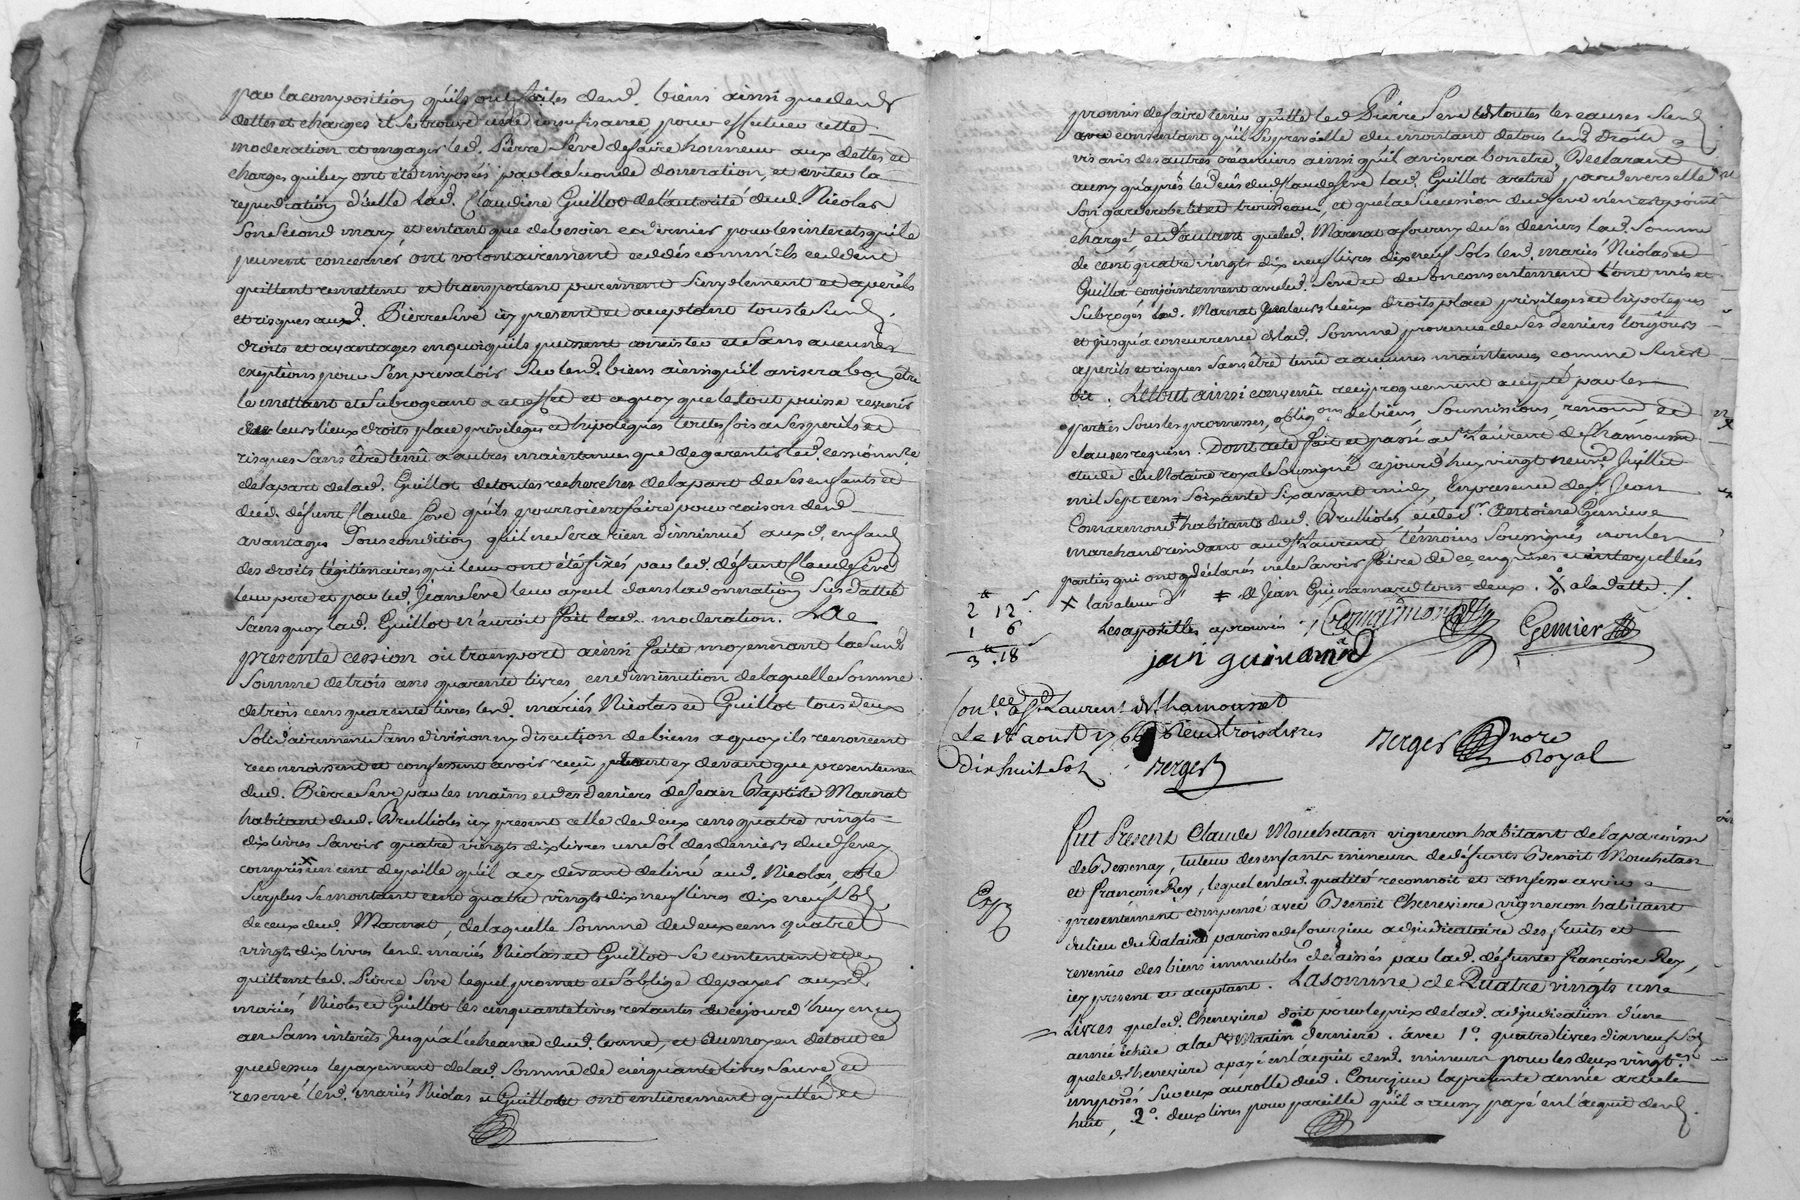 par la composition qu'ils ont faites desd. biens ainsi que des
dettes et charges il se trouve une insufisance pour effectuer cette
moderation et engager led. Pierre Seve de faire honneur aux dettes et
charges qui luy ont été imposés par la seconde donnation, et eviter la
repudiation d'icelle lad. Claudine Guillot de l'autorité dud. Nicolas
son second mary et entant que de besoin ce dernier pour les interets qu'ile
peuvent concerner, ont volontairement ceddés comm'ils ceddent
quittent remettent et transportent purement simplement et a perils
et risques aud. Pierre Seve icy present et acceptant tous les susd.
droits et avantages en quoy qu'ils puissent consister et sans aucunes
exeptions pour s'en prevaloir sur lesd. biens ainsi qu'il avisera bon être
le mettant et subrogeant a cet effet et a quoy que le tout puisse revenir
leurs lieux droits place privileges et hipoteques toutes fois a ses perils et
risques sans être tenû a autres maintenues que de garentir led. cessionre.
de la part de lad. Guillot de toutes recherches de la part de ses enfants et
dud. défunt Claude Seve qu'ils pourroient faire pour raison desd.
avantages sous condition qu'il ne sera rien diminué auxd. enfants
des droits légitimaires qui leur ont été fixés par led. défunt Claude Seve
leur pere et par led. Jean Seve leur ayeul dans la donnation susdattée
sans quoy lad. Guillot n'auroit fait lad. moderation. La
presente cession ou transport ainsi faite moyennant la susd.
somme de trois cens quarente livres en diminution de laquelle somme
de trois cens quarente livres lesd. mariés Nicolas et Guillot tous deux
solidairement sans division ny discution de biens a quoy ils renoncent
reconnoissent et confessent avoir reçû tant cy devant que presentement
dud. Pierre Seve par les mains et des deniers de Jean Baptiste Marnat
habitant dud. Brullioles icy present celle de deux cens quatre vingts
dix livres savoir quatre vingts dix livres un sol des deniers dud. Seve
compris un cent de paille qu'il a cy devant delivré aud. Nicolas et le
surplus se montant cent quatre vingts dix neuf livres dix neuf sols
de ceux dud. Marnat, de laquelle somme de deux cens quatre
vingts dix livres lesd. mariés Nicolas et Guillot se contentent et en
quittent led. Pierre Seve lequel promet et s'oblige de payer auxd.
mariés Nicolas et Guillot les cinquante livres restantes de ce jourd'huy en un
an sans interets jusqu'al'écheance dud. terme, et au moyen de tout ce
que dessus le payement de lad. somme de cinquante livres sauvé et
reservé lesd. mariés Nicolas et Guillot ont entierement quitté et
promis de faire tenir quitte led. Pierre Seve de toutes les causes susd.
avec consentant qu'il se prevaille du montant de tous lesd. droits
vis avis des autres créanciers ainsi qu'il avisera bon etre, Declarant
aussy qu'après le decés dud. Claude Seve lad. Guillot a retiré pardevers elle
son garderobe lit et trousseau, et que la succession dud. Seve n'en est point
chargé et d'autant que led. Marnat a fourny de ses deniers lad. somme
de cent quatre vingts dix neuf livres dix neuf sols lesd. mariés Nicolas et
Guillot conjointement avec led. Seve et de son consentement l'ont mis et
subrogés led. Marnat en leurs lieux droits place privileges et hipoteques
et jusqu'a concurrence de lad. somme provenue de ses deniers toujours
a perils et risques sans être tenu a aucunes maintenues comme sus est
dit. Le tout ainsi convenû reciproquement accepté par les
parties sous les promesses, obligons de biens, soumissions, renons et
clauses requises. Dont acte fait et passé a St Laurent de Chamousset
etude du Notaire royal soussigné ce jourd'huy vingt neuf Juillet
mil sept cens soixante six avant midy, En presence de Sr Jean
Comarmond ‡ habitants dud. Brullioles et de Sr Antoine Genieve
marchand residant aud. St Laurent témoins soussignés, non les
parties qui ont déclarés ne le savoir faire de ce enquises et interpellées
X la valeur d' ‡ et Jean Guinamard tous deux. X a la datte ./.
2 12
1 6
3 . 18
Les apostilles aprouvés ./. Comarmond Genier
jean guinamard
Conllé a St Laurent de Chamousset
Le 1er aoust 1766 Reçu trois livres
dix huit sols . Berger
Berger nore
Royal
Fut Present Claude Mouchettan vigneron habitant de la paroisse
de Bessenay, tuteur des enfants mineurs de défunts Benoit Mouchetan
et françoise Rey, lequel en lad. qualité reconnoit et confesse avoir
Exp
présentement compensé avec Benoit Cheneviere vigneron habitant
du lieu du Palaird paroisse de Courzieu adjudicataire des fruits et
revenus des biens immeubles delaissés par lad. défunte françoise Rey,
icy present et acceptant. La somme de Quatre vingts une
Livres que led. Cheneviere doit pour le prix de lad. adjudication d'une
année échûe a la St Martin derniere. avec 1° quatre livres dix neuf sols
que led. Cheneviere a payé en l'acquit desd. mineurs pour les deux vingtes
imposés sur eux au rolle dud. Courzieu la presente année article
huit, 2° deux livres pour pareille qu'il a aussy payé en l'acquit desd.